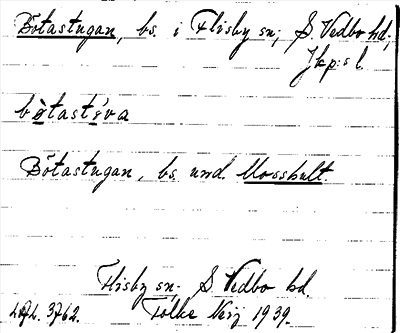 Botastugan, bs. i Flisby sn; S. Vedbo hd;
Jkp:s l.
bòtastúva
Botastugan, bs. und. Mosshult.
Flisby sn. S. Vedbo hd.
3762. Tolke Neij 1939.